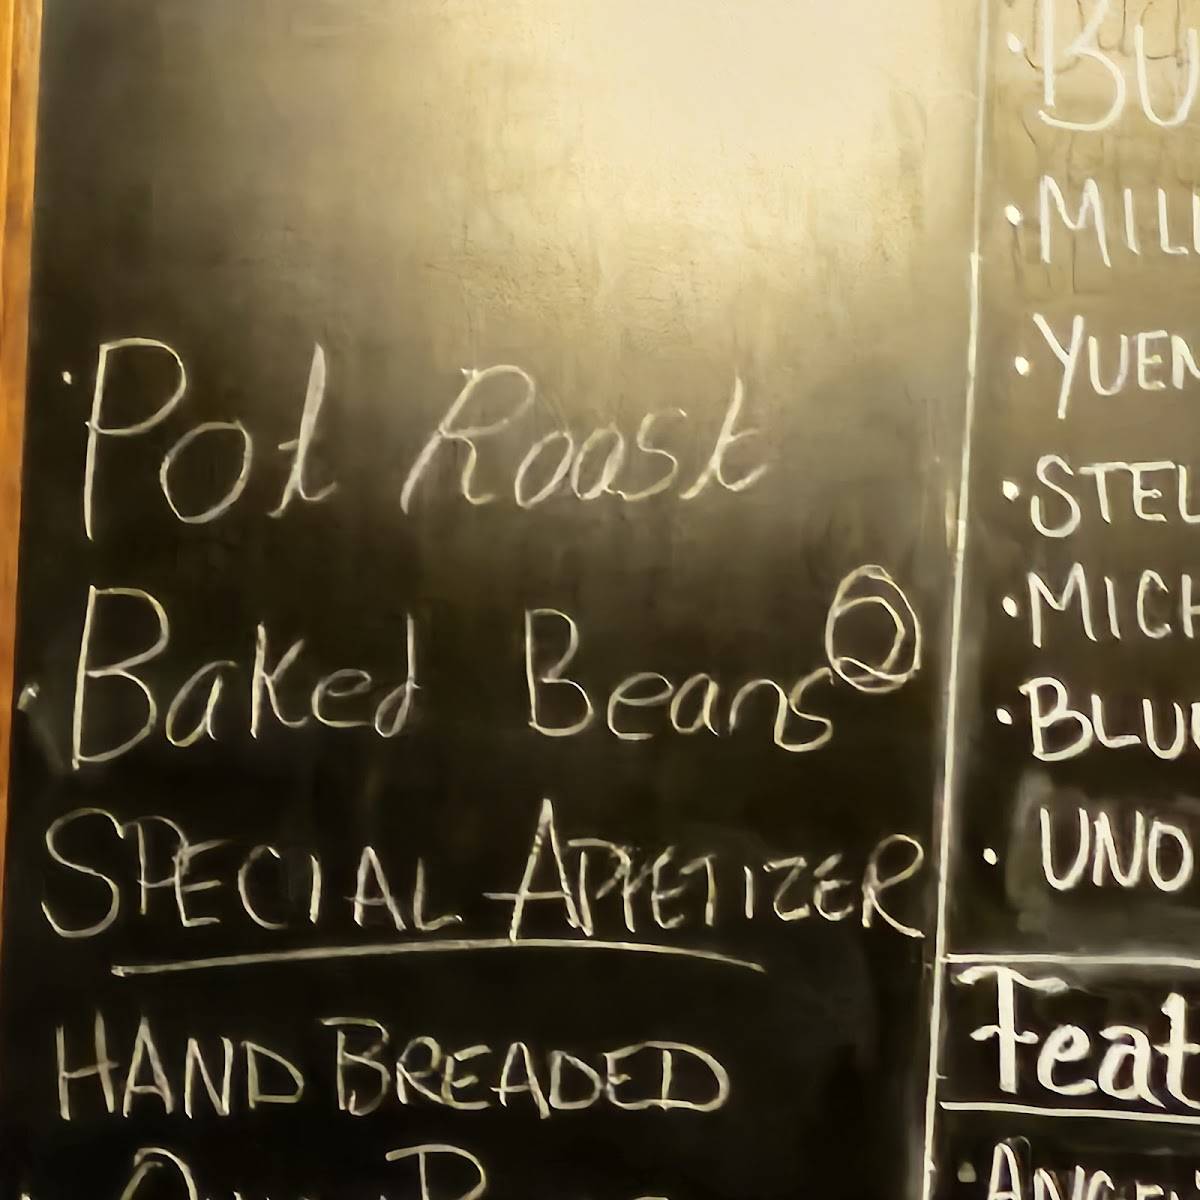 · Pot Roast
· Baked Beans
SPECIAL APPETIZER
HAND BREADED
· BU
· MILL
· YUEN
· STEL
· MICH
· BLUE
· UNO
Feat